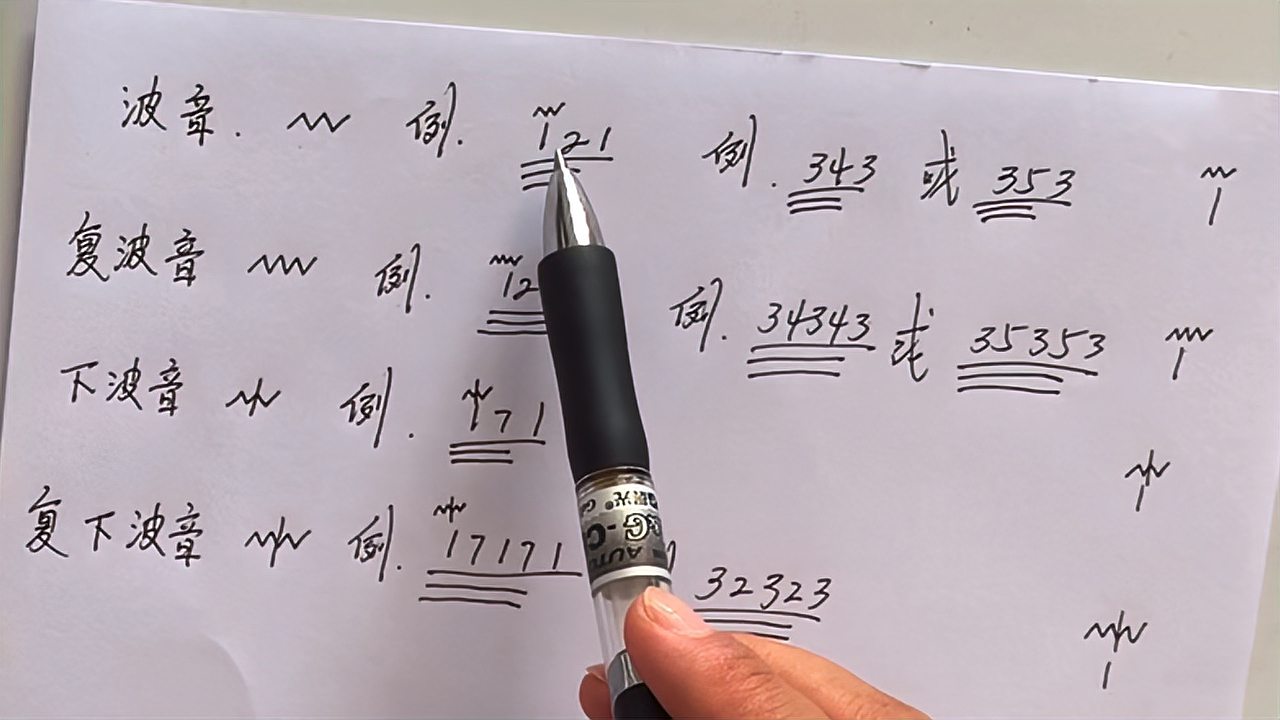 波音. 例. 121 例. 343 或 353 1
复波音 例. 12 例. 34343 或 35353 1
下波音 例. 171 1
复下波音 例. 17171 32323 1